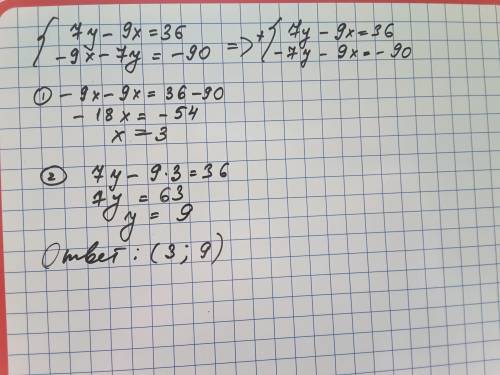 { 7y - 9x = 36 => + { 7y - 9x = 36
-9x - 7y = -90 -7y - 9x = -90
① -9x - 9x = 36 - 90
-18x = -54
x = 3
② 7y - 9·3 = 36
7y = 63
y = 9
Ответ: (3; 9)